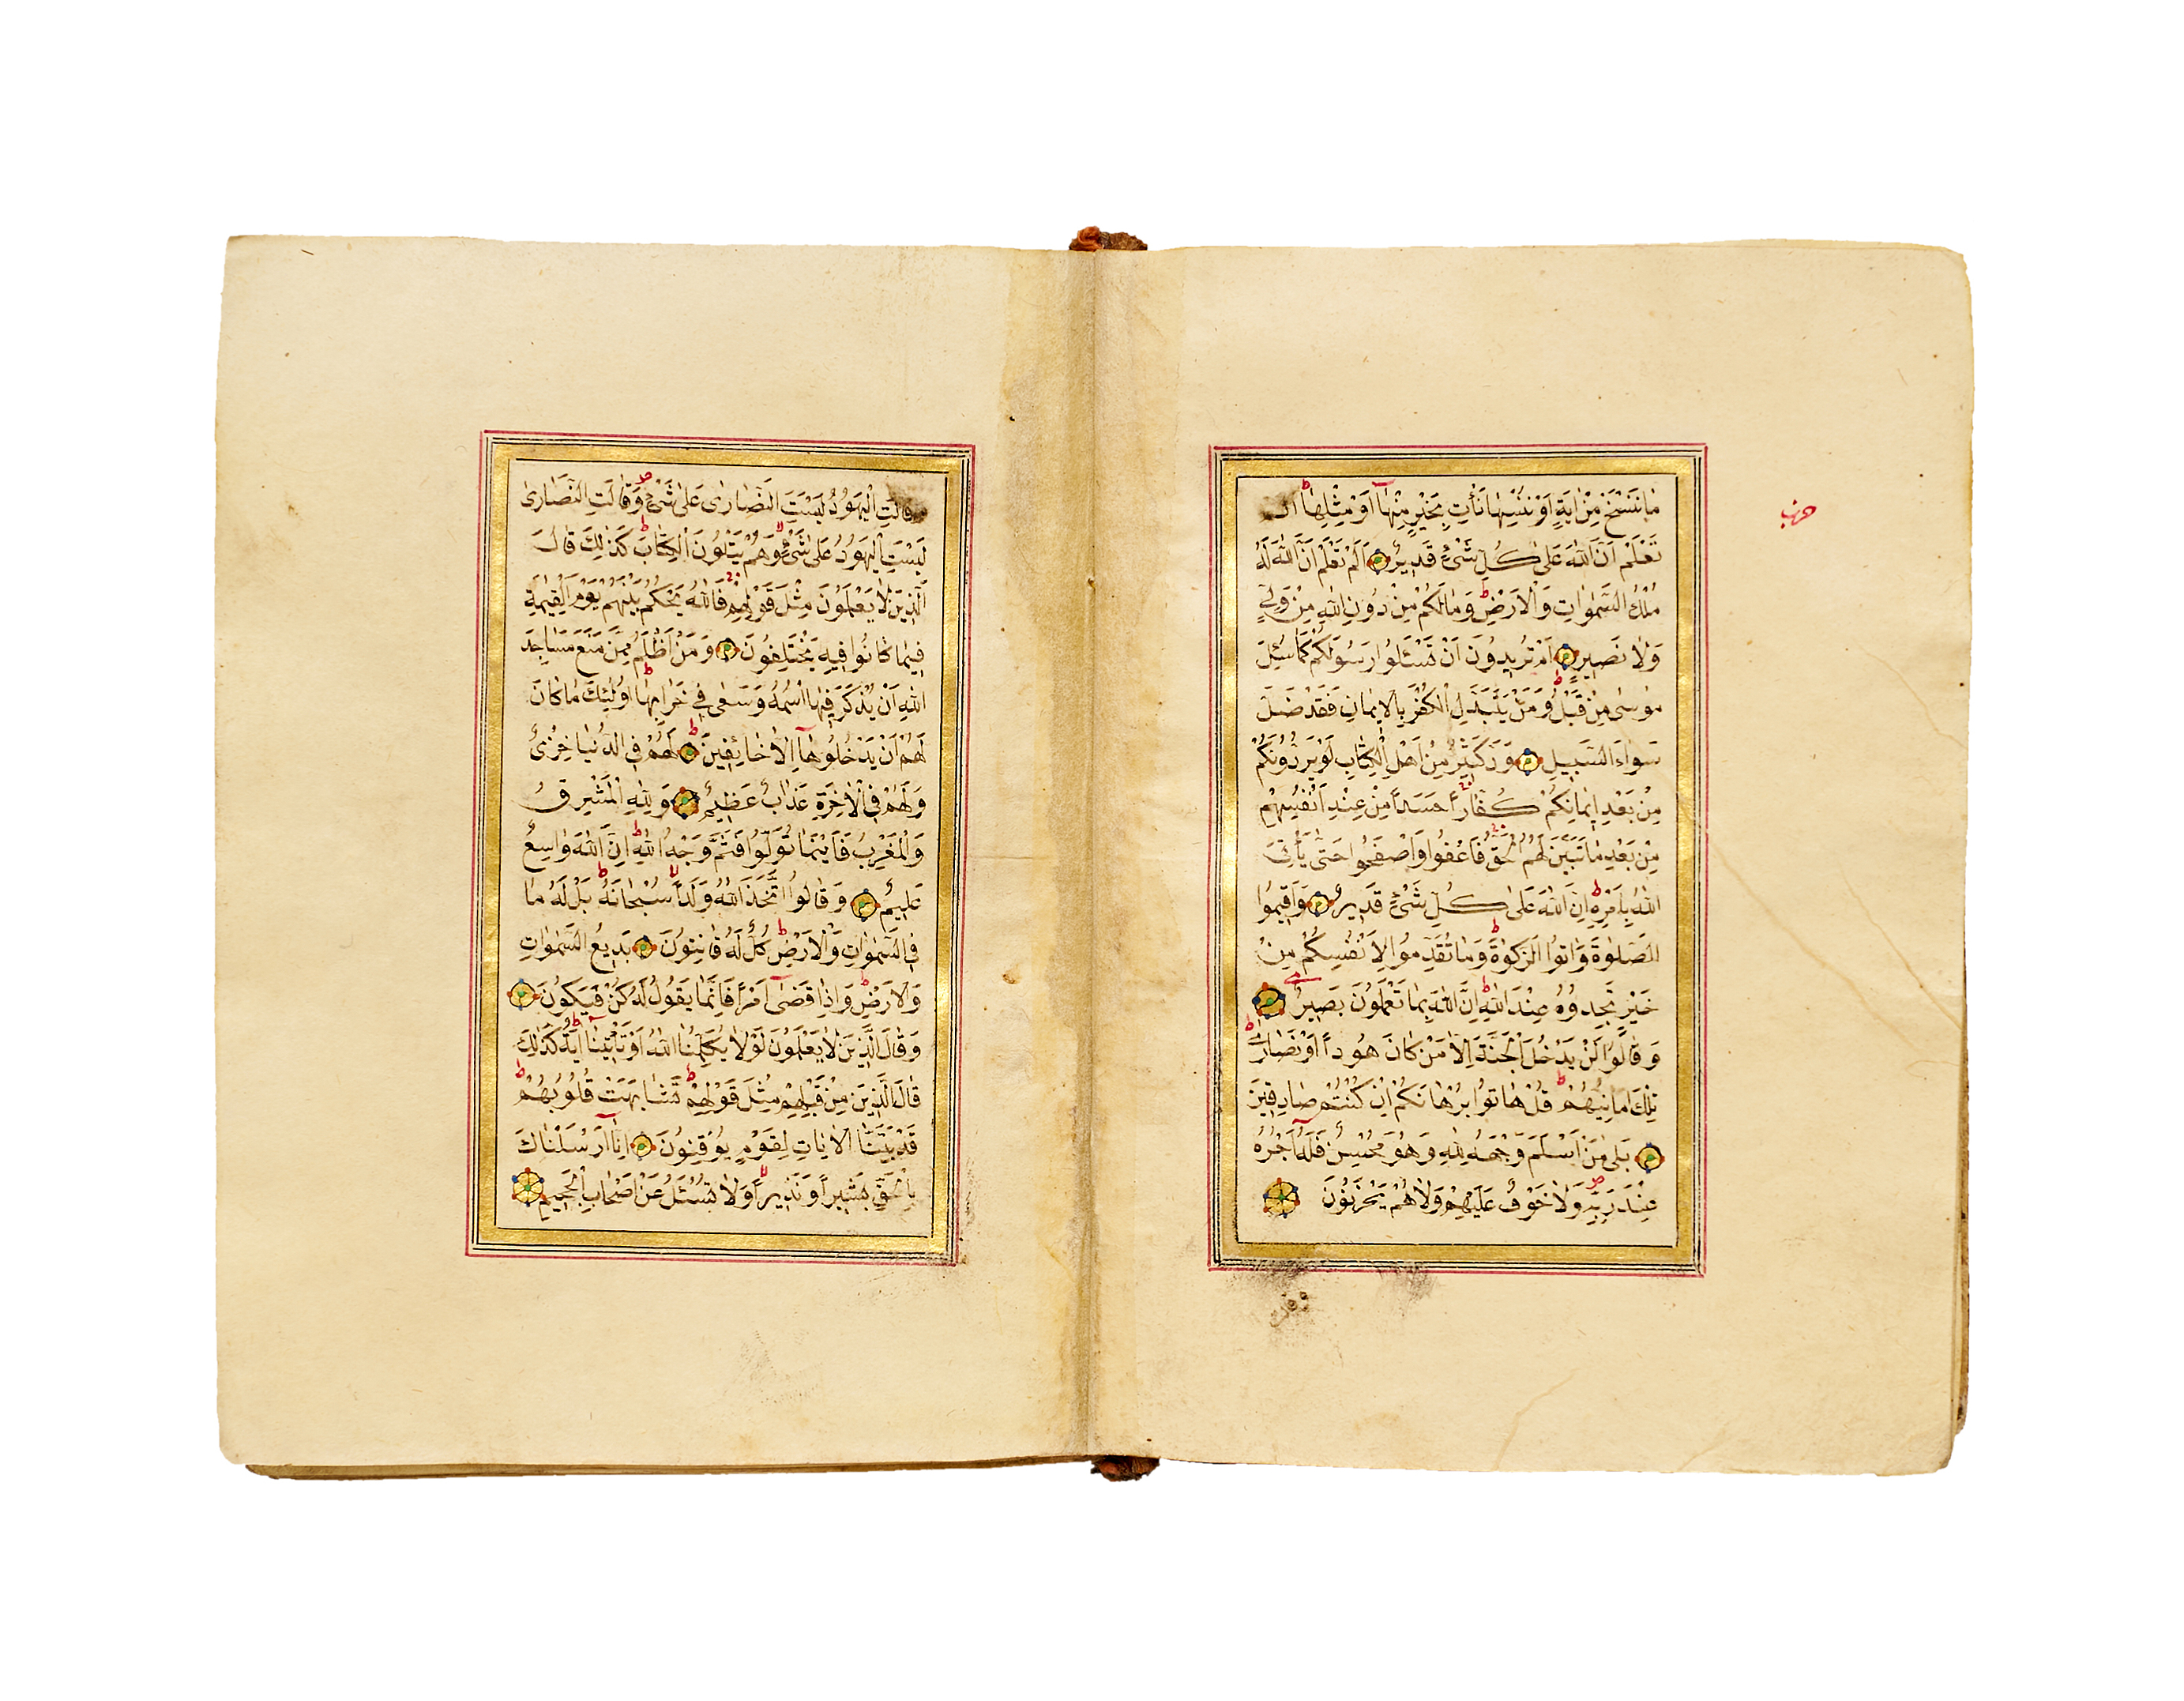 حزب
مَا نَنْسَخْ مِنْ اٰيَةٍ اَوْ نُنْسِهَا نَأْتِ بِخَيْرٍ مِنْهَٓا اَوْ مِثْلِهَا ط اَلَمْ
تَعْلَمْ اَنَّ اللّٰهَ عَلٰى كُلِّ شَىْءٍ قَدِيرٌ اَلَمْ تَعْلَمْ اَنَّ اللّٰهَ لَهُ
مُلْكُ السَّمٰوَاتِ وَالْاَرْضِ ط وَمَا لَكُمْ مِنْ دُونِ اللّٰهِ مِنْ وَلِىٍّ
وَلَا نَصِيرٍ اَمْ تُرِيدُونَ اَنْ تَسْـَٔلُوا رَسُولَكُمْ كَمَا سُئِلَ
مُوسٰى مِنْ قَبْلُ ط وَمَنْ يَتَبَدَّلِ الْكُفْرَ بِالْاِيمَانِ فَقَدْ ضَلَّ
سَوَٓاءَ السَّبِيلِ وَدَّ كَثِيرٌ مِنْ اَهْلِ الْكِتَابِ لَوْ يَرُدُّونَكُمْ
مِنْ بَعْدِ اِيمَانِكُمْ كُفَّارًا حَسَدًا مِنْ عِنْدِ اَنْفُسِهِمْ
مِنْ بَعْدِ مَا تَبَيَّنَ لَهُمُ الْحَقُّ فَاعْفُوا وَاصْفَحُوا حَتّٰى يَأْتِىَ
اللّٰهُ بِاَمْرِهِ ط اِنَّ اللّٰهَ عَلٰى كُلِّ شَىْءٍ قَدِيرٌ وَاَقِيمُوا
الصَّلٰوةَ وَاٰتُوا الزَّكٰوةَ ط وَمَا تُقَدِّمُوا لِاَنْفُسِكُمْ مِنْ
خَيْرٍ تَجِدُوهُ عِنْدَ اللّٰهِ ط اِنَّ اللّٰهَ بِمَا تَعْمَلُونَ بَصِيرٌ
وَقَالُوا لَنْ يَدْخُلَ الْجَنَّةَ اِلَّا مَنْ كَانَ هُودًا اَوْ نَصَارٰى ط
تِلْكَ اَمَانِيُّهُمْ ط قُلْ هَاتُوا بُرْهَانَكُمْ اِنْ كُنْتُمْ صَادِقِينَ
بَلٰى مَنْ اَسْلَمَ وَجْهَهُ لِلّٰهِ وَهُوَ مُحْسِنٌ فَلَهُٓ اَجْرُهُ
عِنْدَ رَبِّهِ ص وَلَا خَوْفٌ عَلَيْهِمْ وَلَا هُمْ يَحْزَنُونَ
وقالت
وَقَالَتِ الْيَهُودُ لَيْسَتِ النَّصَارٰى عَلٰى شَىْءٍ ص وَقَالَتِ النَّصَارٰى
لَيْسَتِ الْيَهُودُ عَلٰى شَىْءٍ لا وَهُمْ يَتْلُونَ الْكِتَابَ ط كَذٰلِكَ قَالَ
الَّذِينَ لَا يَعْلَمُونَ مِثْلَ قَوْلِهِمْ فَاللّٰهُ يَحْكُمُ بَيْنَهُمْ يَوْمَ الْقِيٰمَةِ
فِيمَا كَانُوا فِيهِ يَخْتَلِفُونَ وَمَنْ اَظْلَمُ مِمَّنْ مَنَعَ مَسَاجِدَ
اللّٰهِ اَنْ يُذْكَرَ فِيهَا اسْمُهُ وَسَعٰى فِى خَرَابِهَا ط اُولٰٓئِكَ مَا كَانَ
لَهُمْ اَنْ يَدْخُلُوهَٓا اِلَّا خَائِفِينَ ط لَهُمْ فِى الدُّنْيَا خِزْىٌ
وَلَهُمْ فِى الْاٰخِرَةِ عَذَابٌ عَظِيمٌ وَلِلّٰهِ الْمَشْرِقُ
وَالْمَغْرِبُ فَاَيْنَمَا تُوَلُّوا فَثَمَّ وَجْهُ اللّٰهِ ط اِنَّ اللّٰهَ وَاسِعٌ
عَلِيمٌ وَقَالُوا اتَّخَذَ اللّٰهُ وَلَدًا لا سُبْحَانَهُ ط بَلْ لَهُ مَا
فِى السَّمٰوَاتِ وَالْاَرْضِ ط كُلٌّ لَهُ قَانِتُونَ بَدِيعُ السَّمٰوَاتِ
وَالْاَرْضِ ط وَاِذَا قَضٰٓى اَمْرًا فَاِنَّمَا يَقُولُ لَهُ كُنْ فَيَكُونُ
وَقَالَ الَّذِينَ لَا يَعْلَمُونَ لَوْلَا يُكَلِّمُنَا اللّٰهُ اَوْ تَأْتِينَٓا اٰيَةٌ ط كَذٰلِكَ
قَالَ الَّذِينَ مِنْ قَبْلِهِمْ مِثْلَ قَوْلِهِمْ ط تَشَابَهَتْ قُلُوبُهُمْ ط
قَدْ بَيَّنَّا الْاٰيَاتِ لِقَوْمٍ يُوقِنُونَ اِنَّٓا اَرْسَلْنَاكَ
بِالْحَقِّ بَشِيرًا وَنَذِيرًا لا وَلَا تُسْـَٔلُ عَنْ اَصْحَابِ الْجَحِيمِ